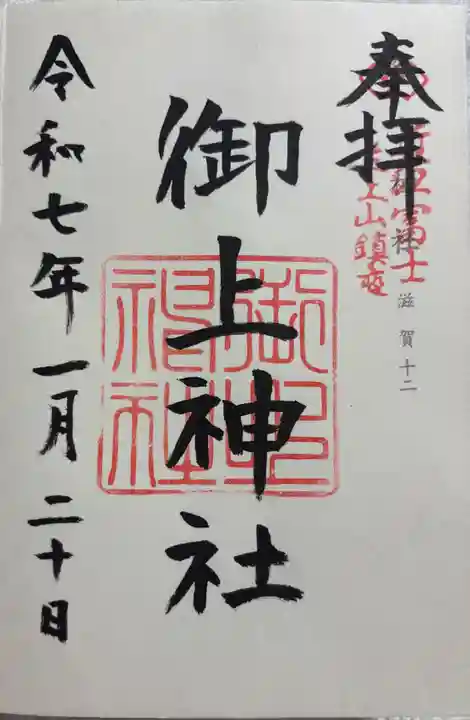 奉拝
近江富士
三上山鎮座
滋賀十二
御上神社
令和七年一月二十日